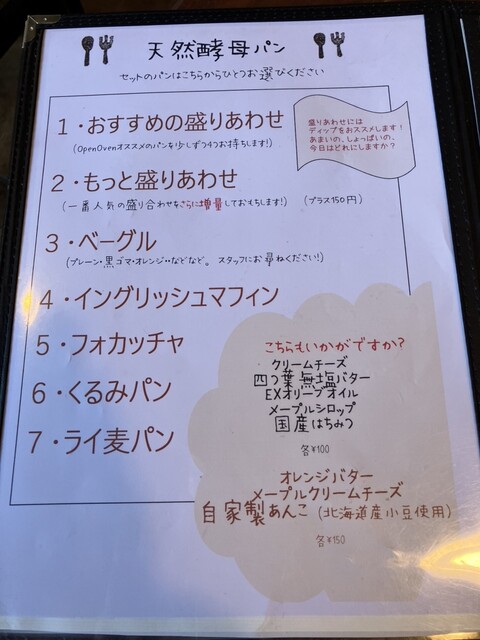 天然酵母パン
セットのパンはこちらからひとつお選びください
1・おすすめの盛りあわせ
(OpenOvenオススメのパンを少しずつ4つお持ちします!)
盛りあわせには
ディップをおススメします!
あまいの、しょっぱいの、
今日はどれにしますか?
2・もっと盛りあわせ
(一番人気の盛り合わせをさらに増量しておもちします!) (プラス150円)
3・ベーグル
(プレーン・黒ゴマ・オレンジ・・などなど。スタッフにお尋ねください!)
4・イングリッシュマフィン
5・フォカッチャ
6・くるみパン
7・ライ麦パン
こちらもいかがですか?
クリームチーズ
四つ葉無塩バター
EXオリーブオイル
メープルシロップ
国産はちみつ
各¥100
オレンジバター
メープルクリームチーズ
自家製あんこ(北海道産小豆使用)
各¥150